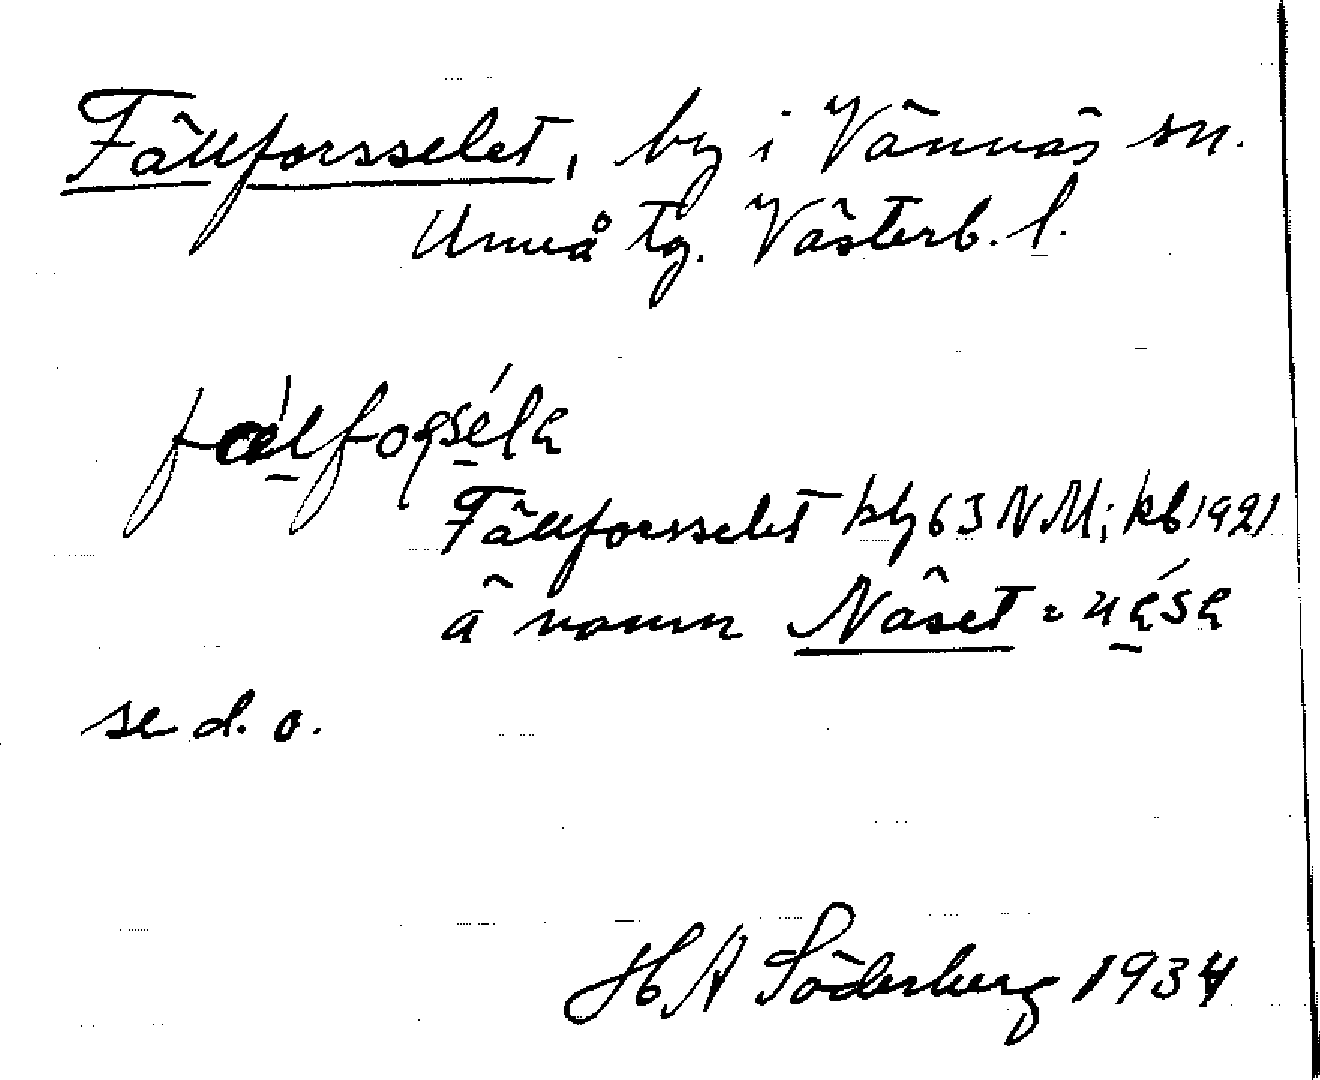 Fällforsselet, by i Vännäs sn.
Umeå tg. Västerb. l.
Fällforsselet kbl 63 NM; kb 1921
ä namn Näset =
se d. o.
HA Söderberg 1934